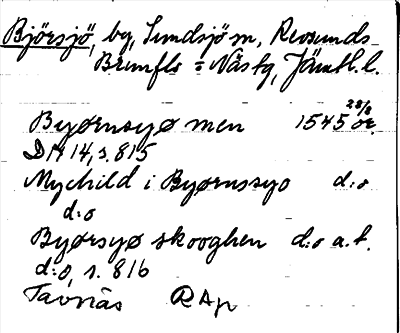 Björsjö, by, Sundsjö sn, Revsunds
Brunflo = Näs tg, Jämtl. l.
Byørnsyø men 1545 28/8 or.
DN 14, s. 815
Mychild i Byørnssyo d:o
d:o
Byørsyø skooghen d:o a.f.
d:o, s. 816
Tavnäs RAp